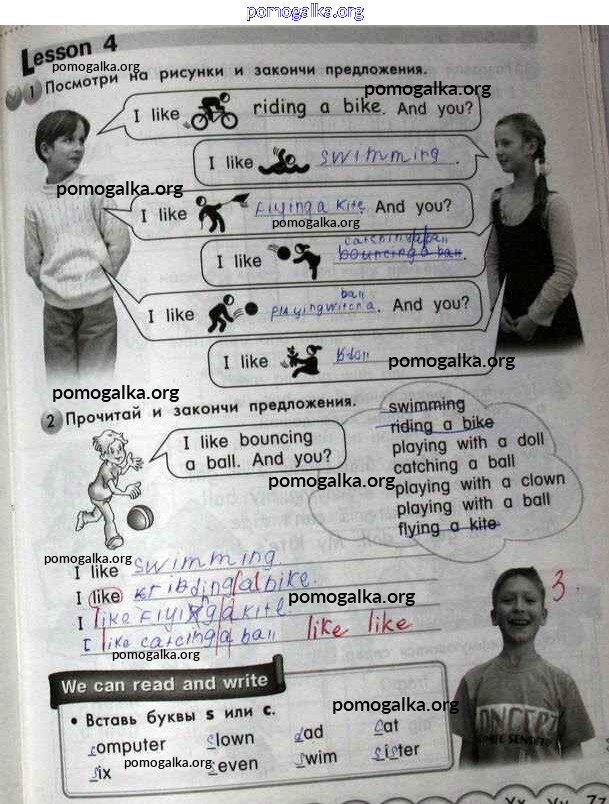 pomogalka.org
Lesson 4
pomogalka.org
1 Посмотри на рисунки и закончи предложения.
pomogalka.org
I like riding a bike. And you?
I like swimming.
pomogalka.org
I like Flying a kite. And you?
pomogalka.org
catching a ball
I like bouncing a ball.
ball
I like playing with a. And you?
I like
pomogalka.org
pomogalka.org
2 Прочитай и закончи предложения.
I like bouncing
a ball. And you?
pomogalka.org
swimming
riding a bike
playing with a doll
catching a ball
playing with a clown
playing with a ball
flying a kite
pomogalka.org
I like swimming
I like ribding a bike.
pomogalka.org
I like Flying a kite.
I like catcing a ball like like
3.
pomogalka.org
We can read and write
• Вставь буквы s или c.
pomogalka.org
computer slown dad cat
six seven swim sister
pomogalka.org
CONCEPT